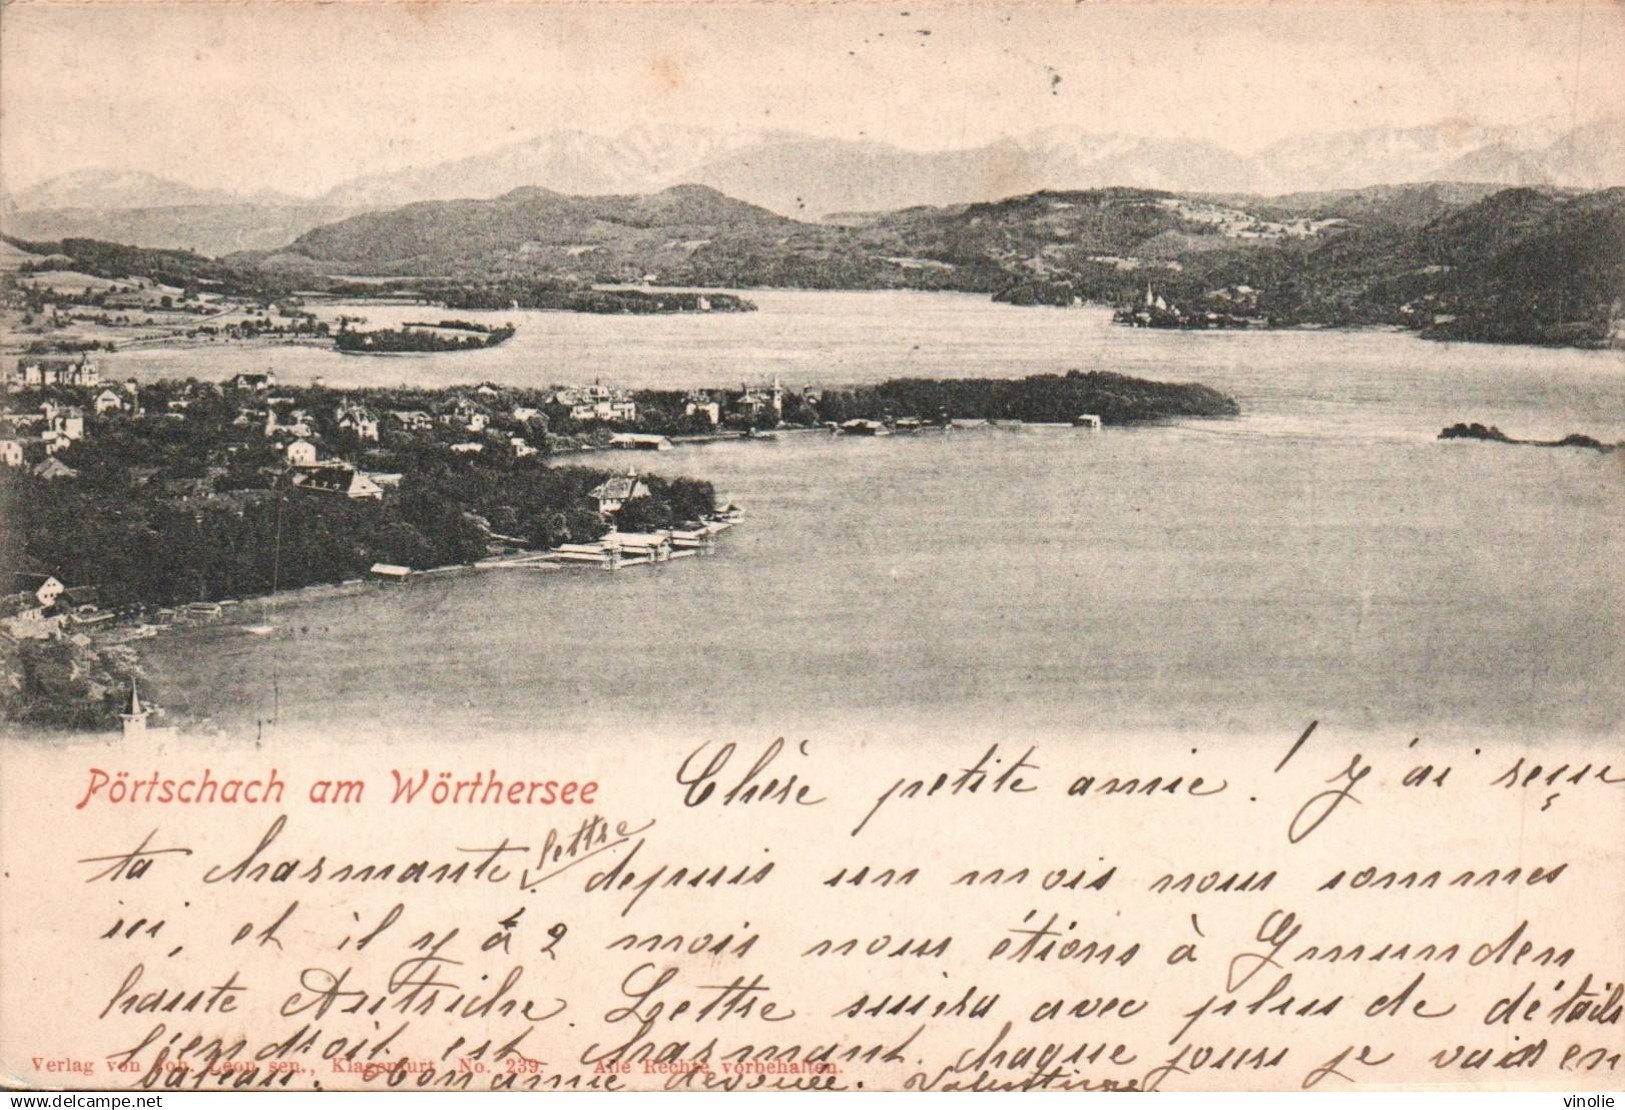 Pörtschach am Wörthersee
Chère petite amie! J'ai reçu
ta charmante lettre depuis un mois nous sommes
ici, et il y à 2 mois nous étions à Gmunden
haute Autriche. Lettre suivra avec plus de détails
l'endroit est charmant. chaque jours je vais en
bateau. Ton amie devouée. Valentine
Verlag von Joh. Leon sen., Klagenfurt No. 239. Alle Rechte vorbehalten.
DELCAMPE.NET
vinolie